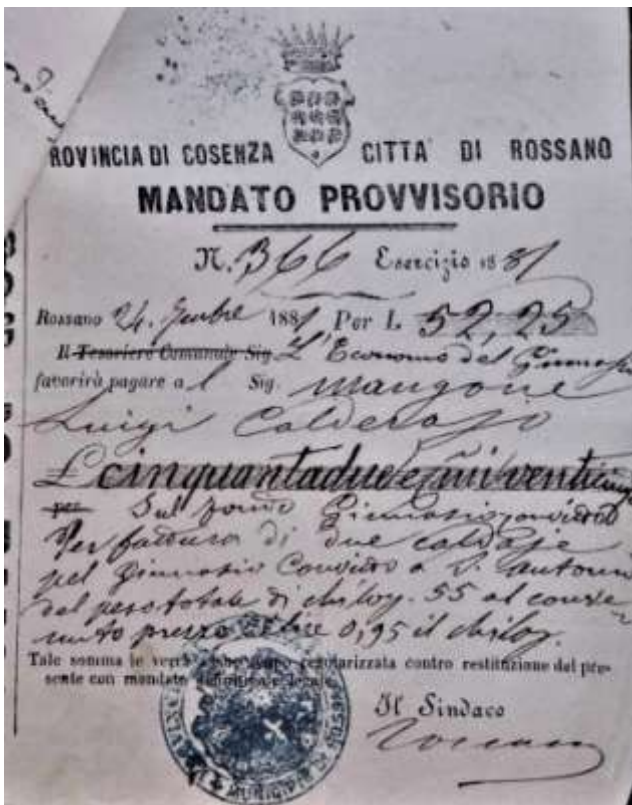 ROVINCIA DI COSENZA CITTA' DI ROSSANO
MANDATO PROVVISORIO
N. 366 Esercizio 1881
Rossano 24. 1881 Per L. 52,25
Il Tesoriere Comunale Sig. L'Economo del
favorirà pagare al Sig. Mangone
Luigi Calderajo
L cinquantadue e
per Sul fondo Ginnasio convitto
Per fattura di due caldaje
pel Ginnasio Convitto a S. Antonio
del peso totale di chilog. 55 al conve-
nuto prezzo Lire 0,95 il chilog.
Tale somma le verrà regolarizzata contro restituzione del pre-
sente con mandato legale
Il Sindaco
MUNICIPIO DI